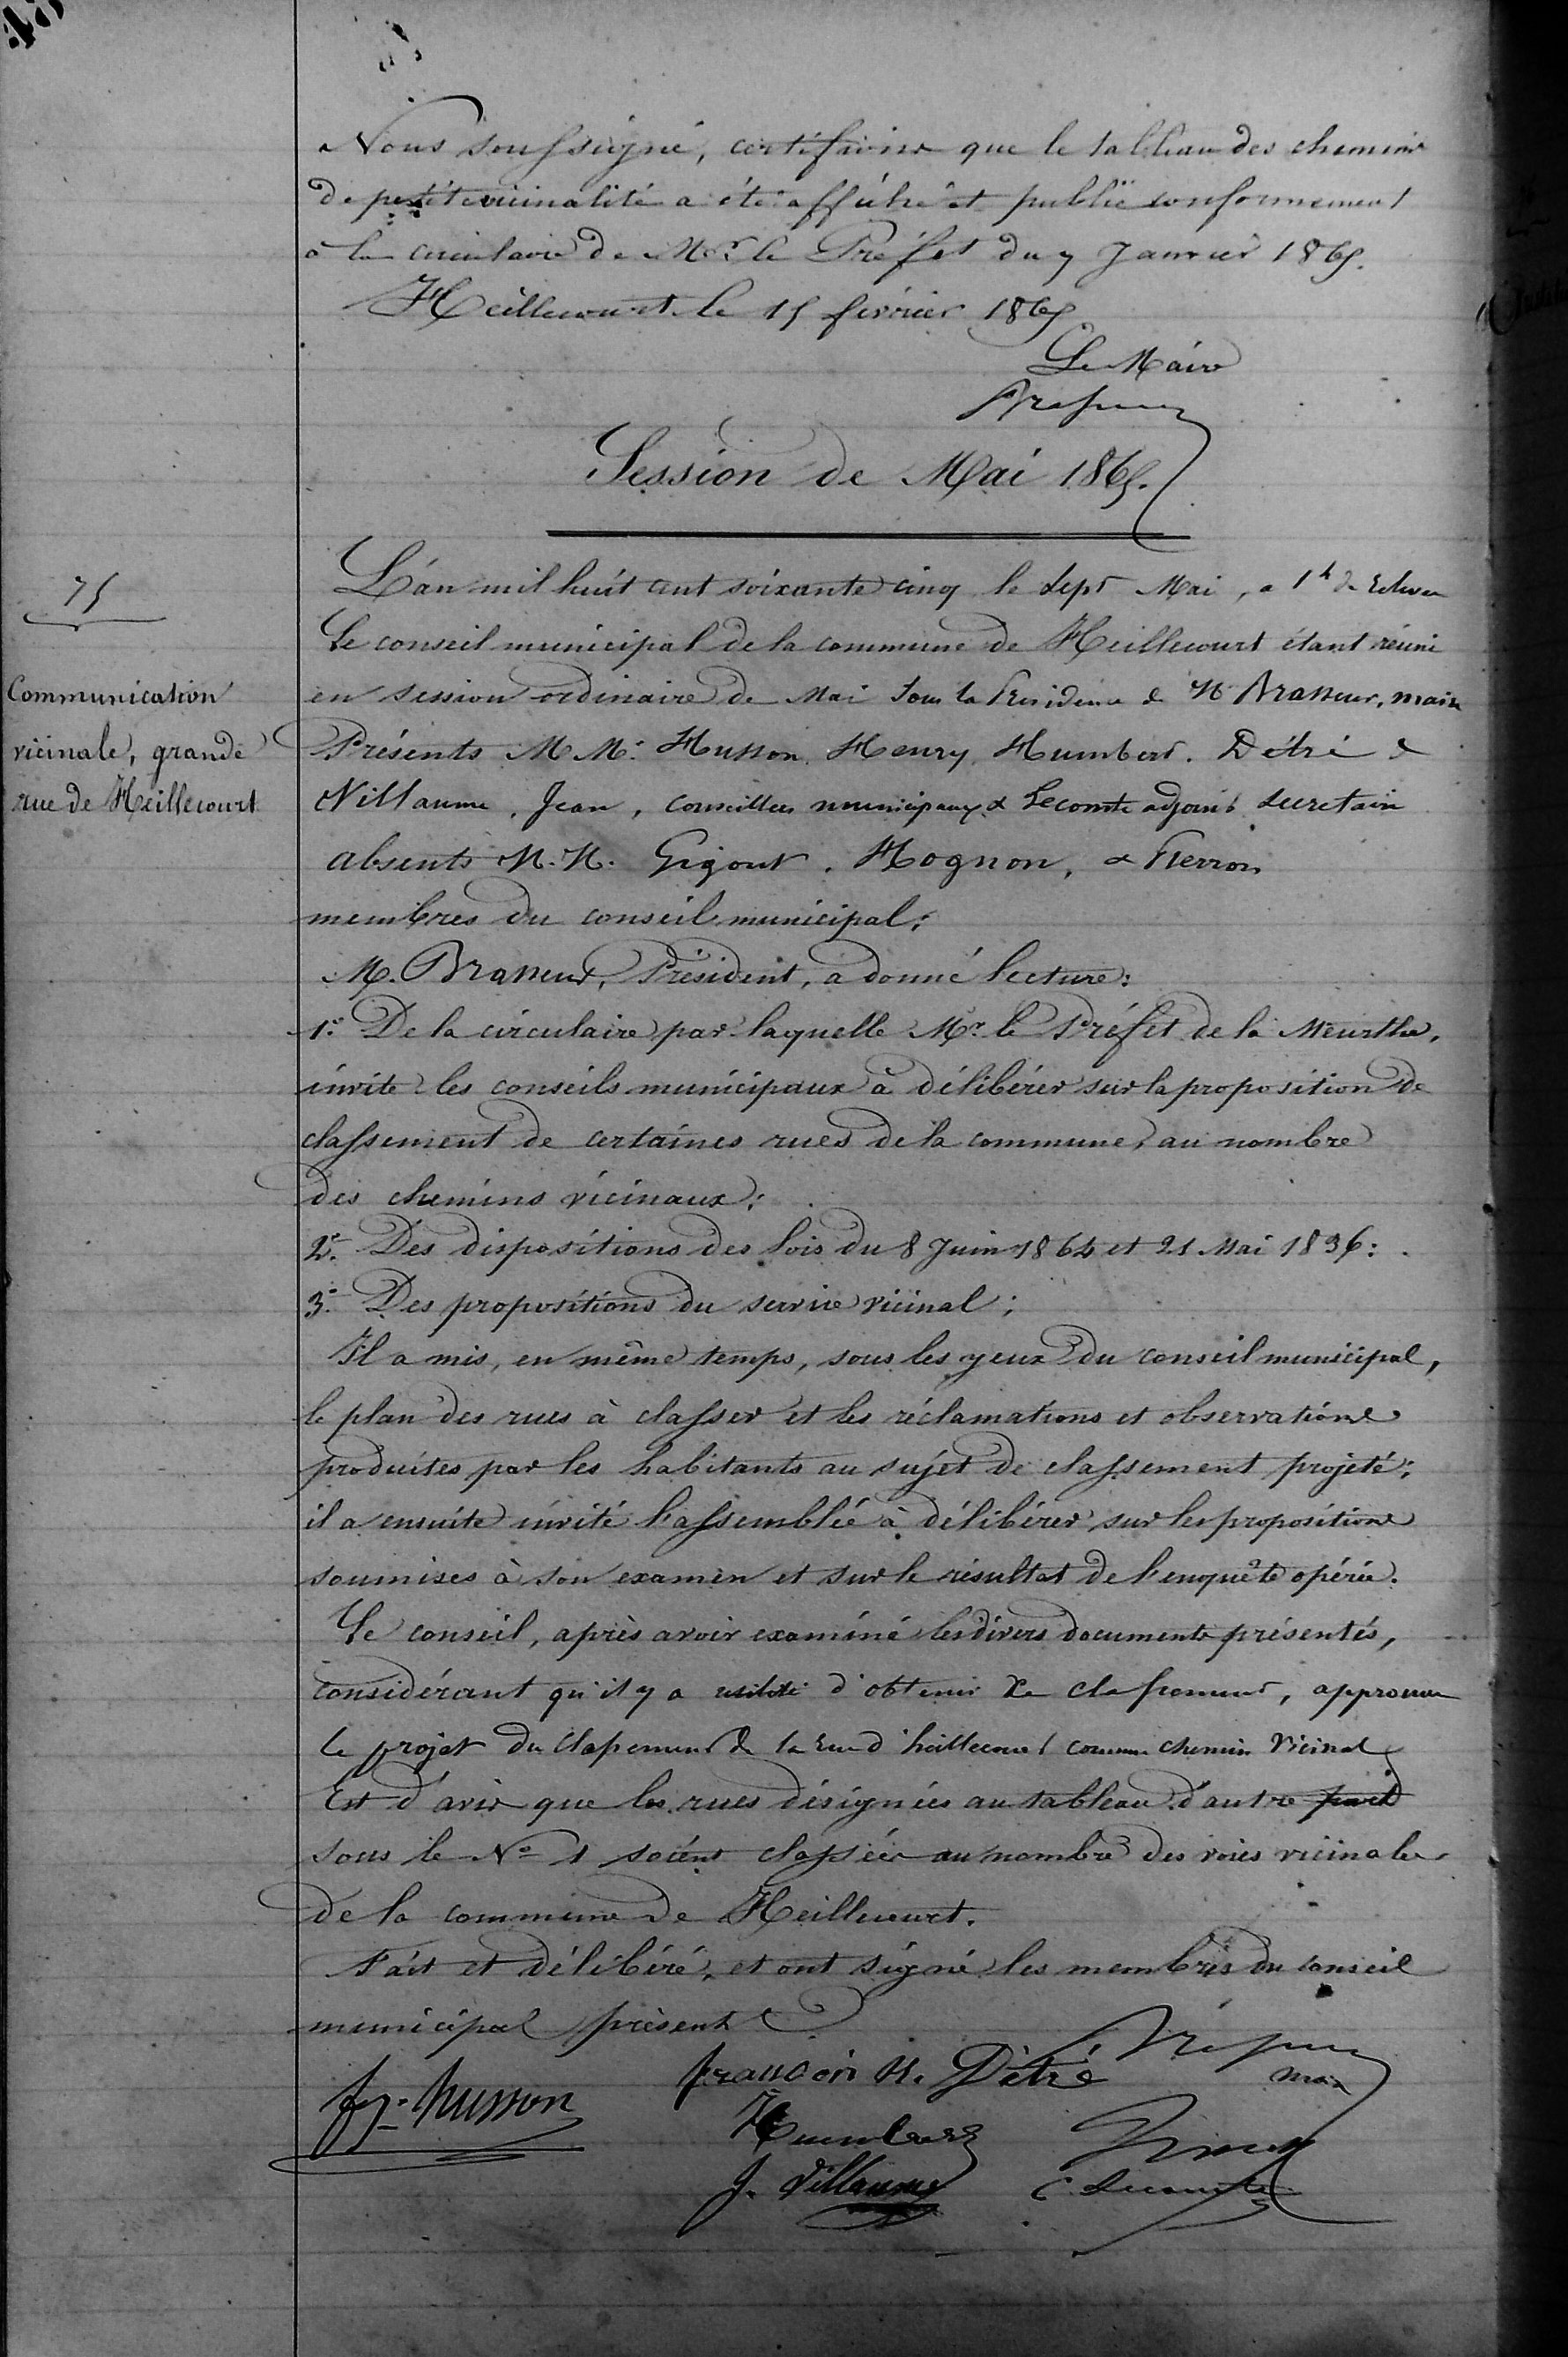 Nous soussigné, certifions que le tableau des chemins
de petite vicinalité a été affiché et publié conformement
à la circulaire de Mr. le Préfet du 7 Janvier 1865.
Heillecourt le 15 février 1865
Le Maire
Brasseur
Session de Mai 1865.
75
Communication
vicinale, grande
rue de Heillecourt
L'an mil huit cent soixante cinq le sept Mai, a 1h de
Le conseil municipal de la commune de Heillecourt étant réuni
en session ordinaire de Mai sous la Présidence de M Brasseur, maire
Présents M.M. Husson, Henry, Humbert. Détré &
Villaume, Jean, conseillers municipaux & Lecomte adjoint secretaire
absents M.M. Gigout, Hognon, & Pierron
membres du conseil municipal;
M. Brasseur, Président, a donné lecture:
1º. De la circulaire par laquelle Mr. le Préfet de la Meurthe,
invite les conseils municipaux à délibérer sur la proposition de
classement de certaines rues de la commune, au nombre
des chemins vicinaux;
2º. Des dispositions des lois du 8 Juin 1864 et 21 Mai 1836:
3º. Des propositions du service vicinal;
Il a mis, en même temps, sous les yeux du conseil municipal,
le plan des rues à classer et les réclamations et observations
produites par les habitants au sujet de classement projeté;
il a ensuite invité l'assemblée à délibérer sur les propositions
soumises à son examen et sur le résultat de l'enquête opérée.
Le conseil, après avoir examiné les divers documents présentés,
considérant qu'il y a utilité d'obtenir le classement, approuve
le projet du classement de la rue d'heillecourt comme chemin vicinal
Est d'avis que les rues désignées au tableau d'autre part
sous le Nº 1 soient classées au nombre des voies vicinales
de la commune de Heillecourt.
Fait et délibéré, et ont signé les membres du conseil
municipal présents
Brasseur
maire
françois N. Détré
Husson
Humbert
J. Villaume
C. Lecomte